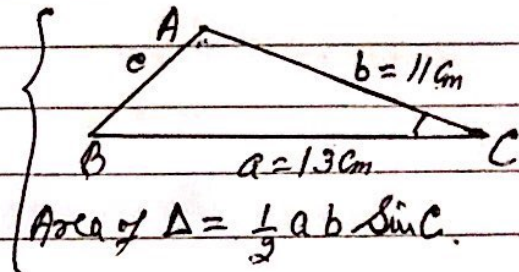 A
c
b = 11 cm
B
C
a = 13 cm
Area of Δ = 1/2 a b Sin C.